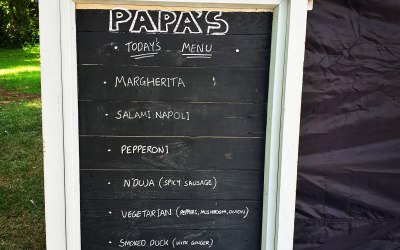 PAPA'S
• TODAY'S MENU •
• MARGHERITA
• SALAMI NAPOLI
• PEPPERONI
• N'DUJA (SPICY SAUSAGE)
• VEGETARIAN (PEPPERS, MUSHROOM, ONION)
• SMOKED DUCK (WITH GINGER)